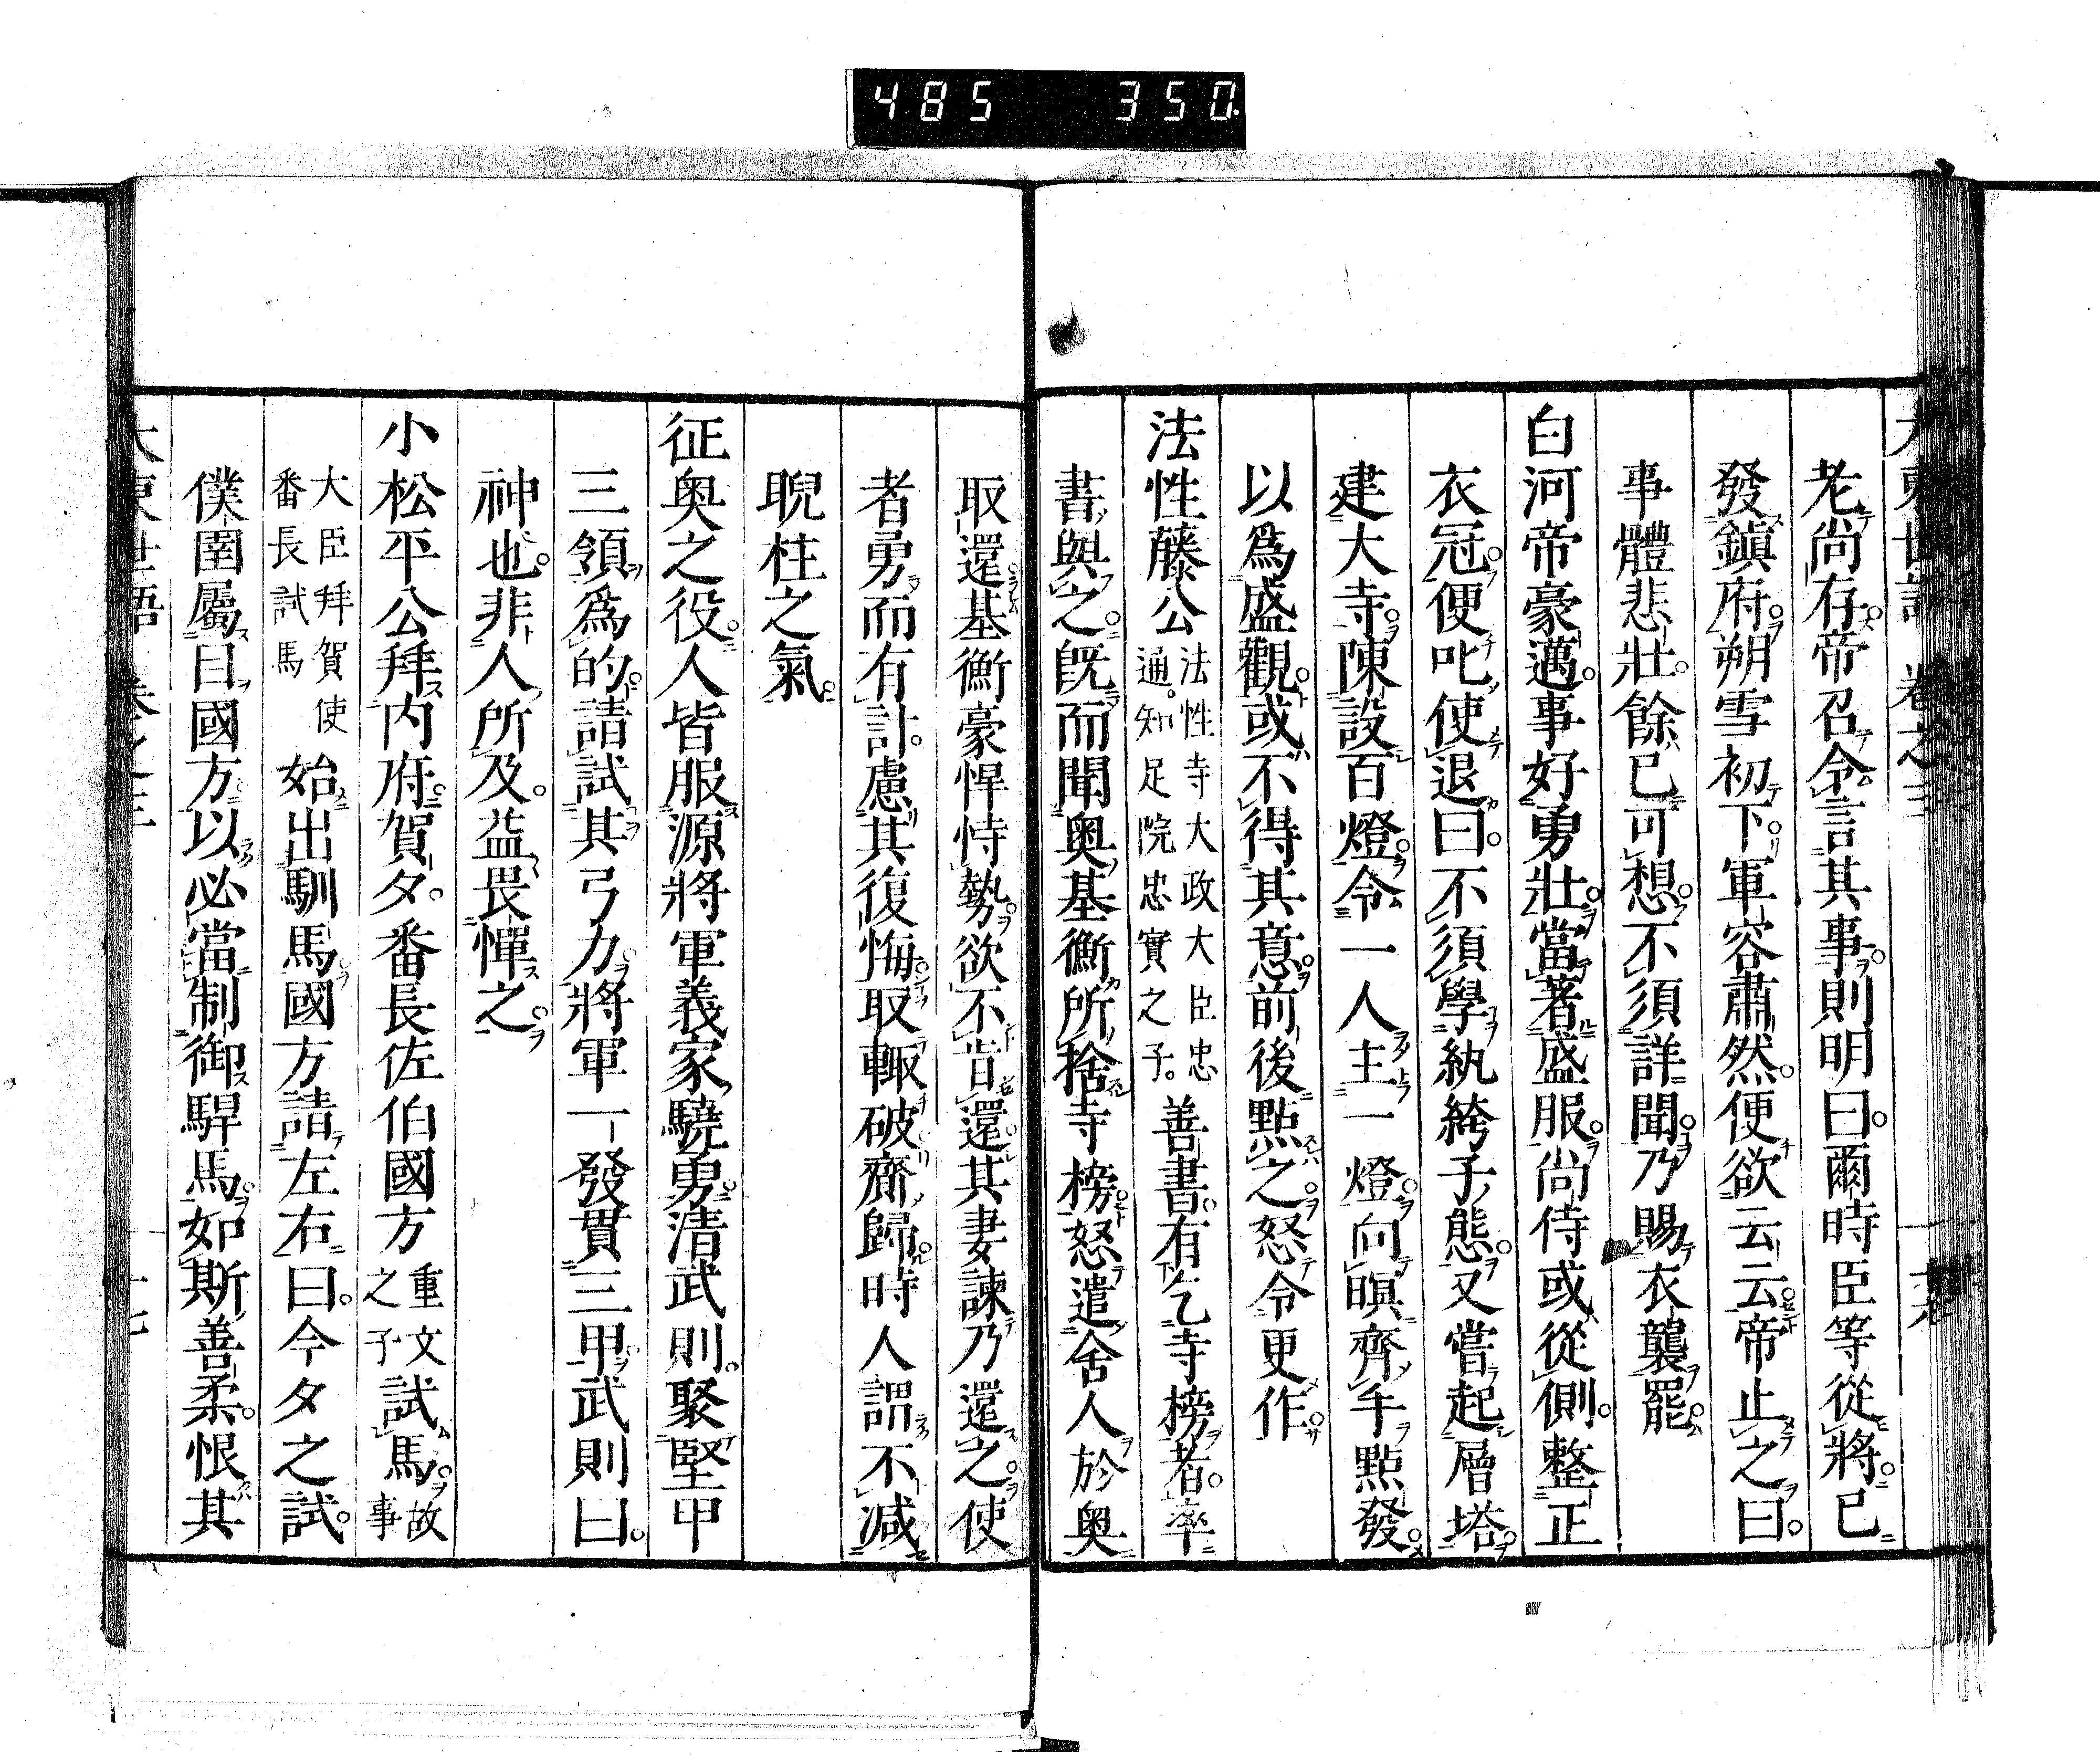 485 350
大東世語 卷之三
老尚存帝召令言其事則明曰爾時臣等從將已
發鎮府朔雪初下軍容肅然便欲云云帝止之曰
事體悲壯餘已可想不須詳聞乃賜衣襲罷
白河帝豪邁事好勇壯當著盛服尚侍或從側整正
衣冠便叱使退曰不須學紈絝子態又嘗起層塔
建大寺陳設百燈令一人主一燈向暝齊手點發
以爲盛觀或不得其意前後點之怒令更作
法性藤公法性寺大政大臣忠通知足院忠實之子善書有乞寺榜者率
書與之旣而聞奧基衡所捨寺榜怒遣舍人於奧
取還基衡豪悍恃勢欲不肯還其妻諫乃還之使
者勇而有計慮其復悔取輙破齎歸時人謂不減
睨柱之氣
征奧之役人皆服源將軍義家驍勇清武則聚堅甲
三領爲的請試其弓力將軍一發貫三甲武則曰
神也非人所及益畏憚之
小松平公拜内府賀夕番長佐伯國方重文之子試馬故事
大臣拜賀使番長試馬始出馴馬國方請左右曰今夕之試
僕圉屬目國方以必當制御駻馬如斯善柔恨其
大東世語 卷之三